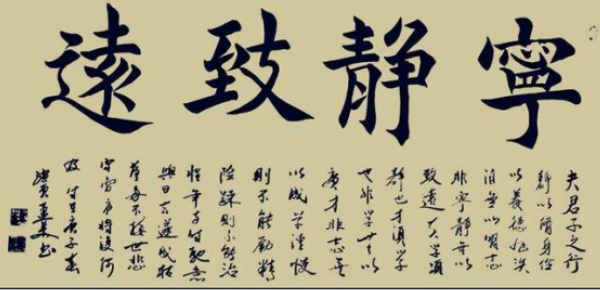 寧静致遠
夫君子之行
静以脩身儉
以養德非淡
泊無以明志
非寧静無以
致遠夫學須
静也才須學
也非學無以
廣才非志無
以成学淫慢
則不能勵精
險躁則不能治
性年与时馳意
與日去遂成枯
落多不接世悲
守窮廬將復何
及 庚子春
書